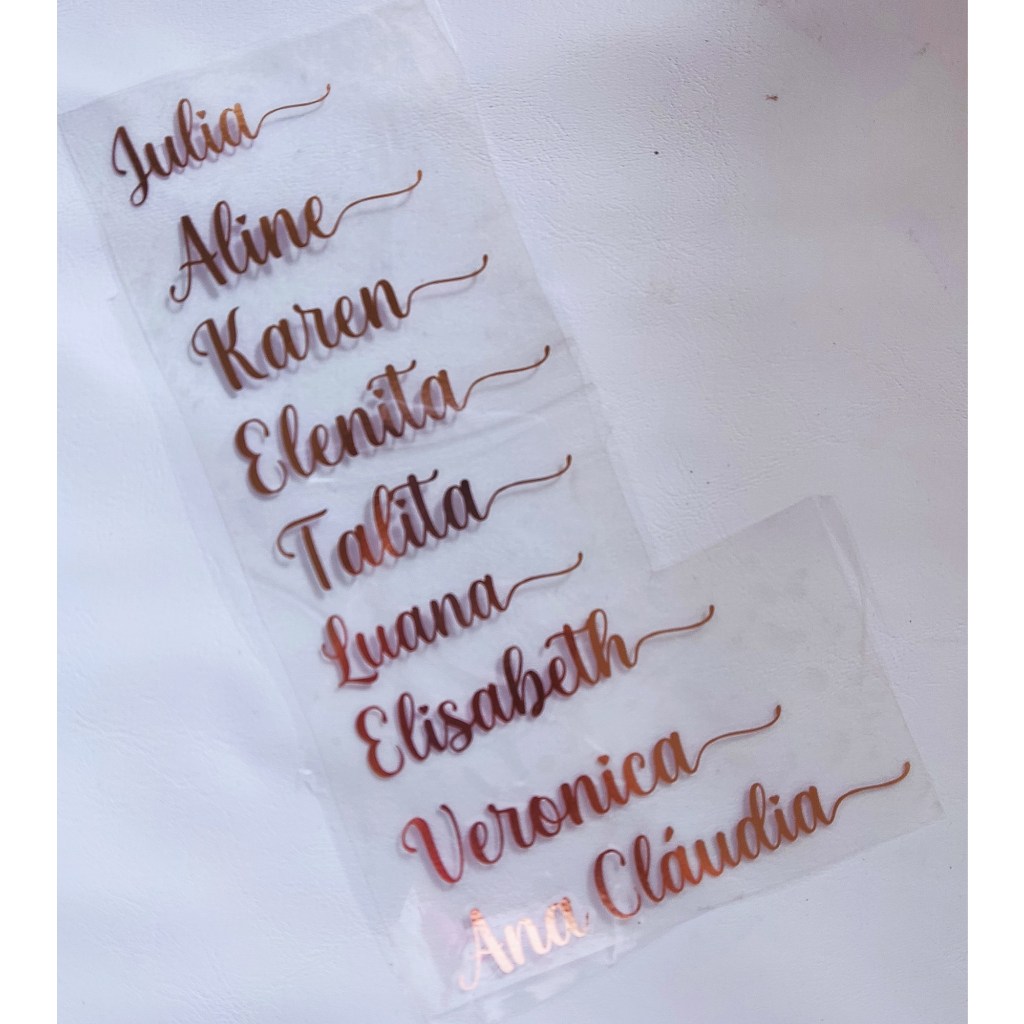 Julia
Aline
Karen
Elenita
Talita
Luana
Elisabeth
Veronica
Ana Cláudia